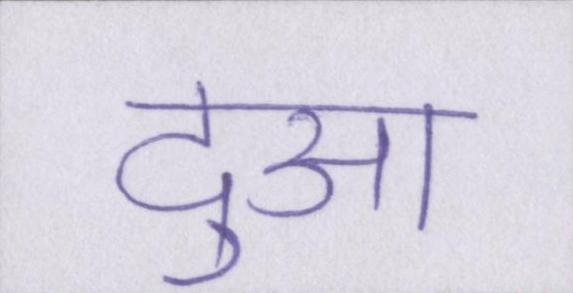 दुआ